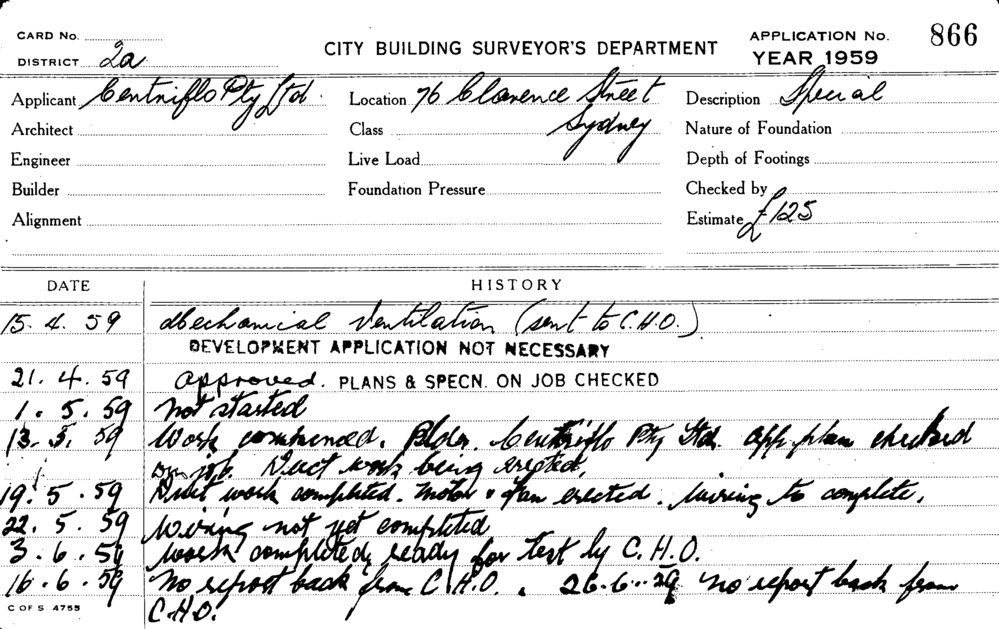 CARD No.
CITY BUILDING SURVEYOR'S DEPARTMENT
APPLICATION No. 866
DISTRICT 2a
YEAR 1959
Applicant Centriflo Pty Ltd
Location 76 Clarence Street
Sydney
Description Special
Architect
Class
Nature of Foundation
Engineer
Live Load
Depth of Footings
Builder
Foundation Pressure
Checked by
Alignment
Estimate £125
DATE HISTORY
15. 4. 59 Mechanical Ventilation (sent to C.H.O.)
DEVELOPMENT APPLICATION NOT NECESSARY
21. 4. 59 Approved. PLANS & SPECN. ON JOB CHECKED
1. 5. 59 Not started
13. 5. 59 Work commenced. Blder. Centriflo Pty Ltd. App. plan checked
on job. Duct work being erected.
19. 5. 59 Duct work completed. Motor & Fan erected. Wiring to complete.
22. 5. 59 Wiring not yet completed
3. 6. 59 Work completed, ready for test by C.H.O.
16. 6. 59 No report back from C.H.O. . 26.6.59 No report back from
C.H.O.
C OF S 4755